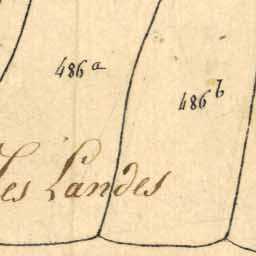 486 a
486 b
Les Landes